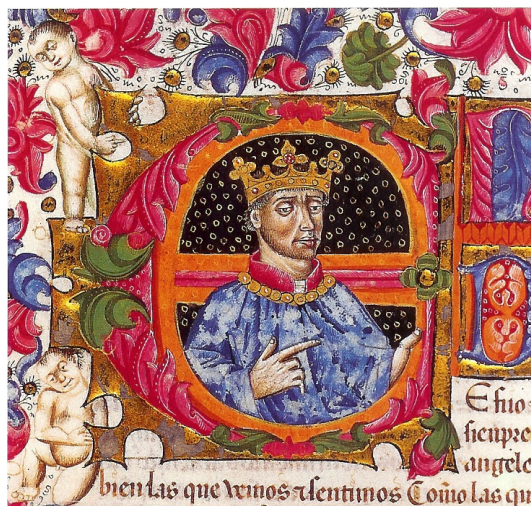 E
E fizo
sienpre
angele
bien las que vemos τ sentimos Como las qu